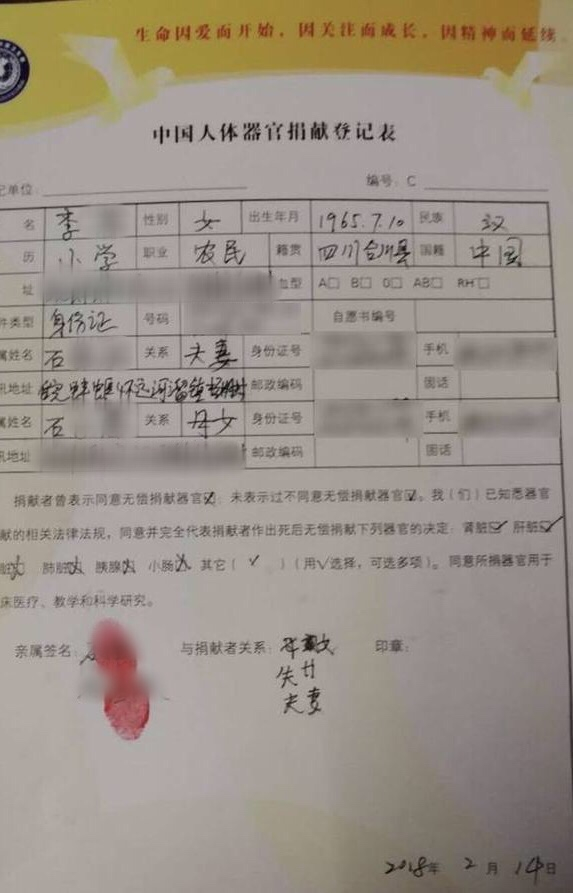 生命因爱而开始,因关注而成长,因精神而延续。
中国人体器官捐献登记表
记单位: 编号:C
名 李 性别 女 出生年月 1965.7.10 民族 汉
历 小学 职业 农民 籍贯 四川合川县 国籍 中国
址 血型 A□ B□ O□ AB□ RH□
件类型 身份证 号码 自愿书编号
属姓名 石 关系 夫妻 身份证号 手机
讯地址 皖蚌埠怀远河溜镇 邮政编码 固话
属姓名 石 关系 母女 身份证号 手机
讯地址 邮政编码 固话
捐献者曾表示同意无偿捐献器官☑;未表示过不同意无偿捐献器官☑。我(们)已知悉器官
献的相关法律法规,同意并完全代表捐献者作出死后无偿捐献下列器官的决定:肾脏☑ 肝脏☑
脏 肺脏 胰腺 小肠 其它(√)(用√选择,可选多项)。同意所捐器官用于
床医疗、教学和科学研究。
亲属签名: 与捐献者关系: 印章:
夫妻
2018年 2 月 14日